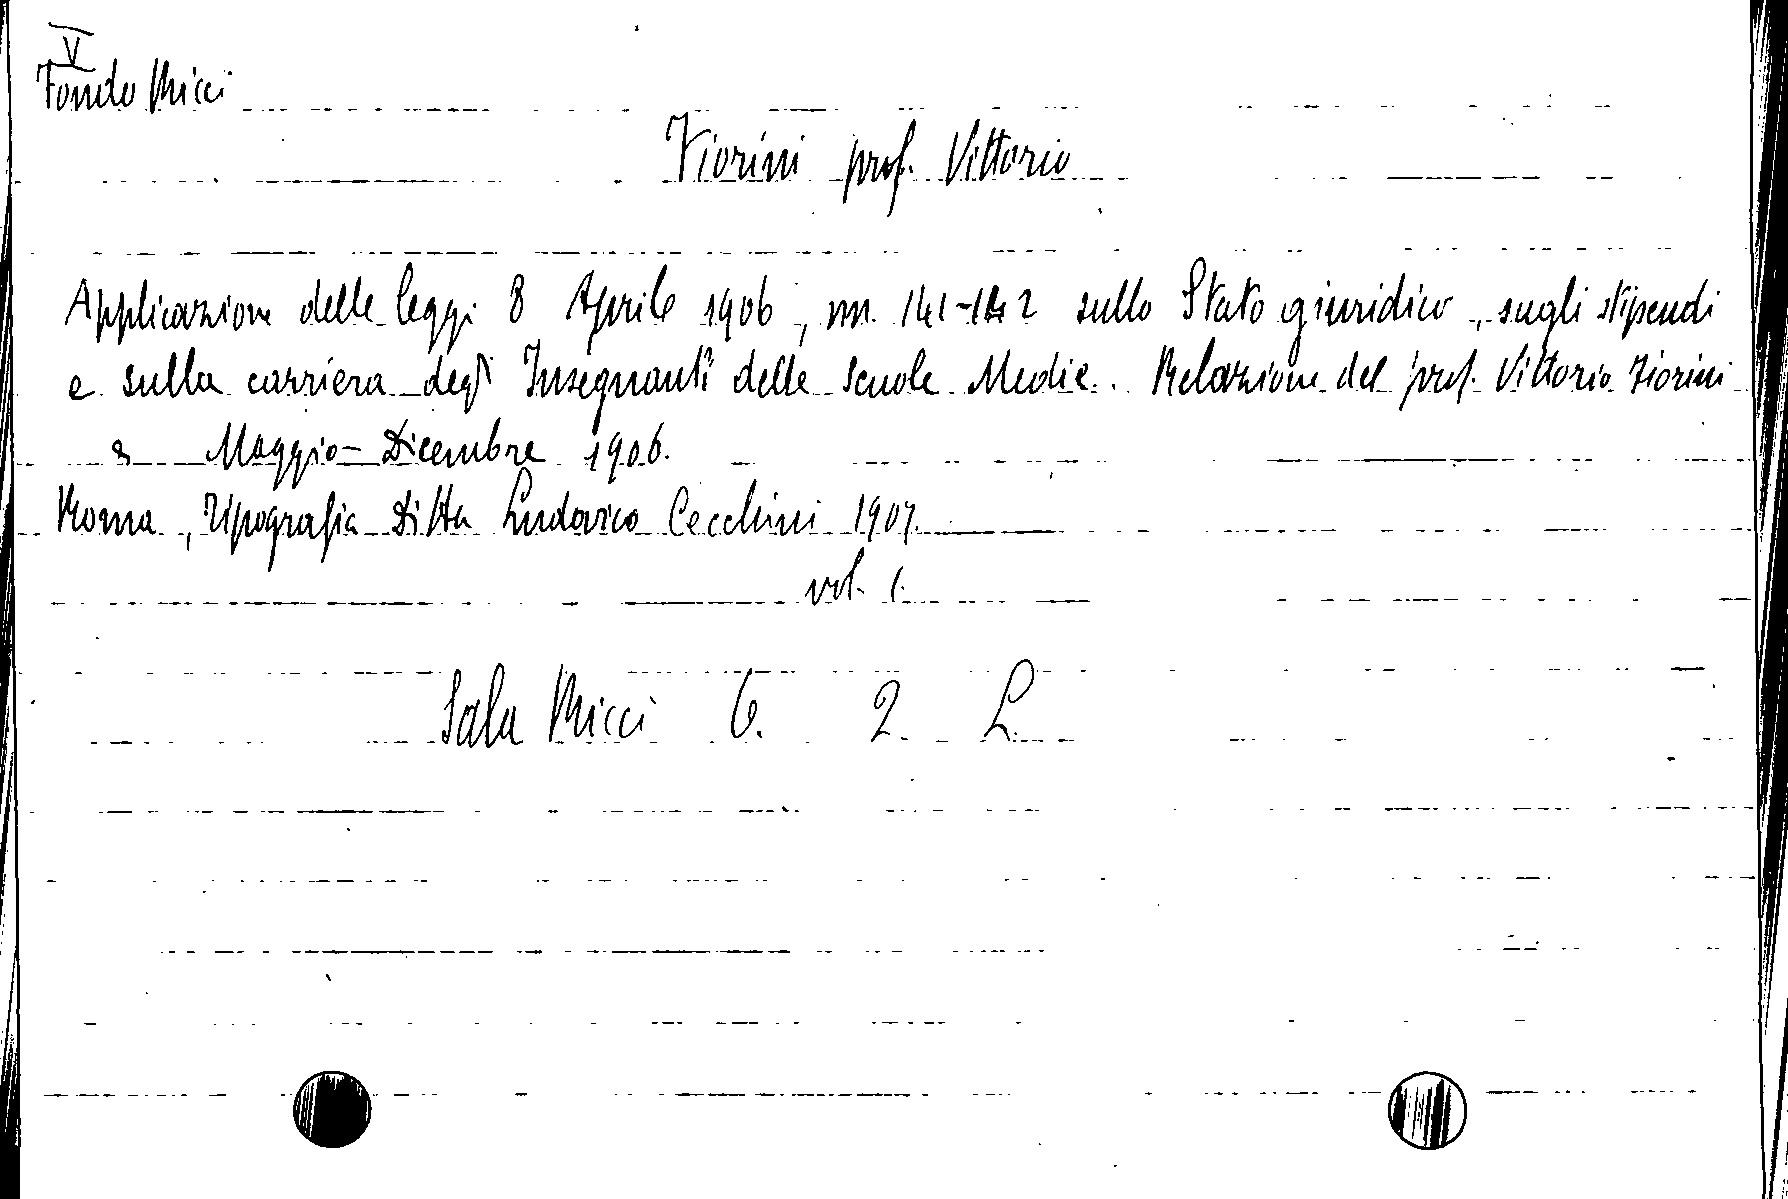 V
Fondo Ricci
Fiorini prof. Vittorio
Applicazione delle leggi 8 Aprile 1906, nn. 141-142 sullo Stato giuridico, sugli stipendi
e sulla carriera degli Insegnanti delle Scuole Medie. Relazione del prof. Vittorio Fiorini
Maggio-Dicembre 1906.
Roma, Tipografia Ditta Ludovico Cecchini 1907.
vol. 1.
Sala Ricci 6. 2. L.